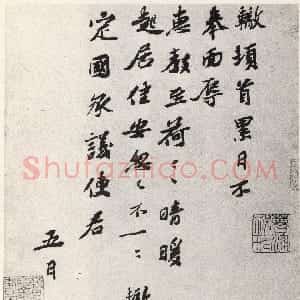 轍頓首累月不
奉面辱
惠教至荷〻晴暖
起居佳安忽〻不一〻轍
定國承議使君
五月
Shufazidao.com